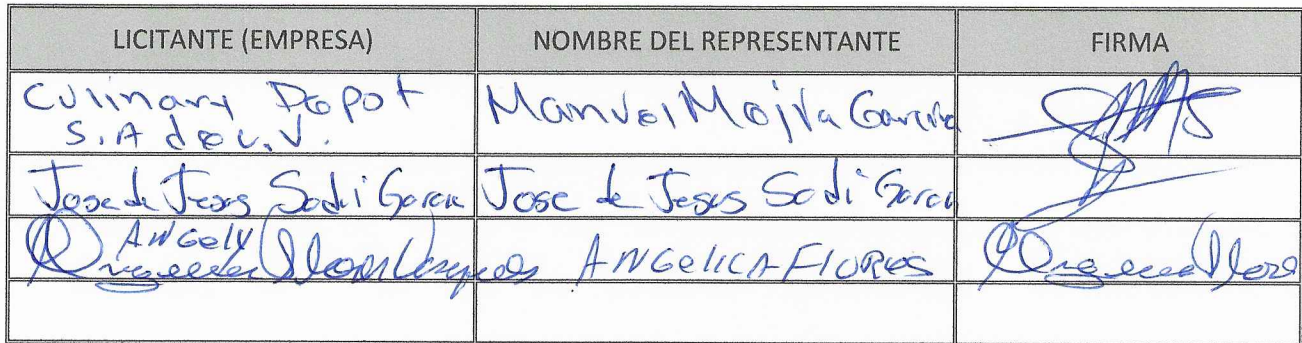 LICITANTE (EMPRESA) NOMBRE DEL REPRESENTANTE FIRMA
Culinary Depot Manuel Mojica Garcia
S.A de C.V.
Jose de Jesus Sodi Garcia Jose de Jesus Sodi Garcia
ANGELICA FLORES